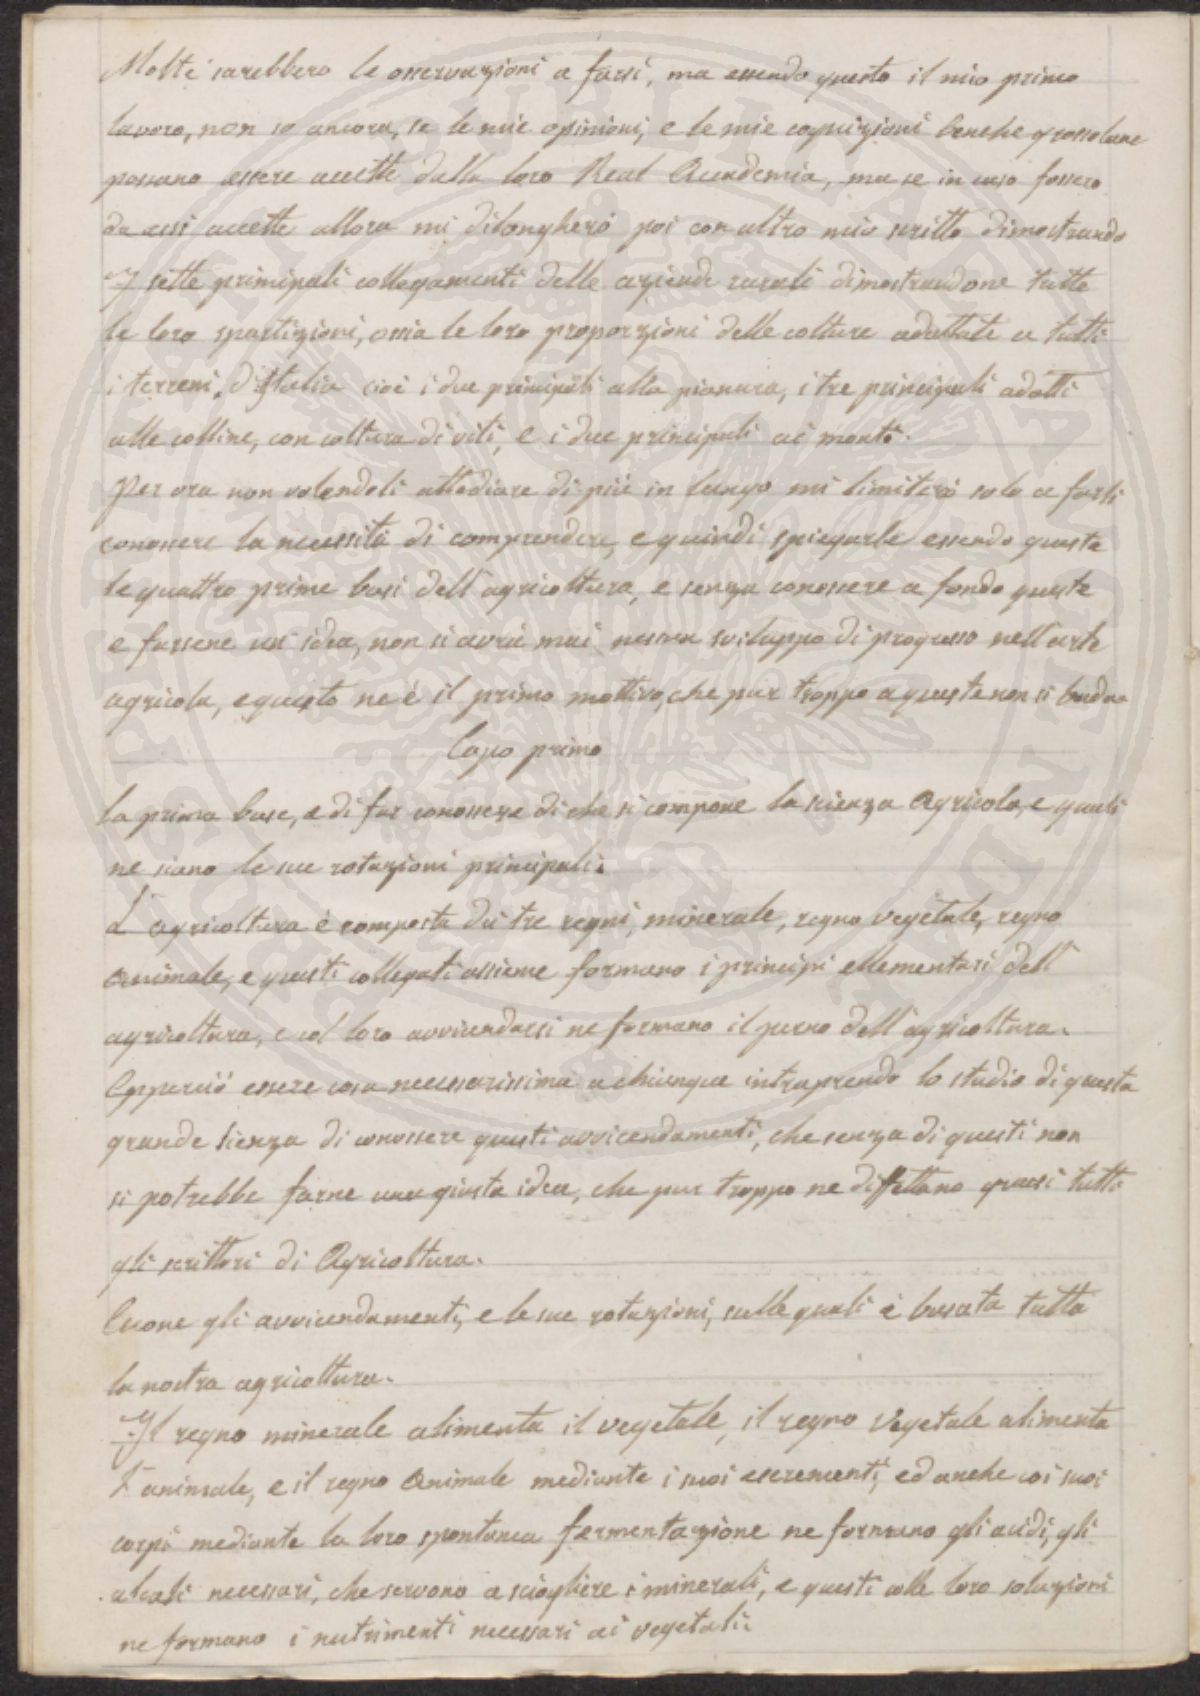 Molti sarebbero le osservazioni a farsi, ma essendo questo il mio primo
lavoro, non so ancora, se le mie opinioni, e le mie cognizioni benche grossolane
possano essere accette dalla loro Real Accademia, ma se in caso fossero
da essi accette allora mi dilongherò poi con altro mio scritto dimostrando
I sette principali collegamenti delle aziende rurali dimostrandone tutte
le loro spartizioni, ossia le loro proporzioni delle colture adattate a tutti
i terreni d'Italia cioè i due principali alla pianura, i tre principali adatti
alle colline, con coltura di viti, e i due principali ai monti.
Per ora non volendoli attediare di più in lungo mi limiterò solo a farli
conossere la necessità di comprendere, e quindi spiegarle essendo queste
le quattro prime basi dell'agricoltura, e senza conossere a fondo queste
e farsene un'idea, non si avrà mai nessun sviluppo di progresso nell'arte
agricola, e questo ne è il primo mottivo, che pur troppo a queste non si bada
Capo primo
La prima base, e di far conossere di che si compone la scienza Agricola, e quali
ne siano le sue rotazioni principali.
L'agricoltura è composta dai tre regni, minerale, regno vegetale, regno
animale, e questi collegati assieme formano i principi ellementari dell'
agricoltura, e col loro avvicendarsi ne formano il perno dell'agricoltura.
Epperciò essere cosa necessarissima a chiunque intraprenda lo studio di questa
grande sienza di conossere questi avvicendamenti, che senza di questi non
si potrebbe farne una giusta idea, che pur troppo ne diffettano quasi tutti
gli scrittori di Agricoltura.
Cuone gli avvicendamenti, e le sue rotazioni, sulle quali è basata tutta
la nostra agricoltura.
Il regno minerale alimenta il vegetale, il regno vegetale alimenta
l'animale, e il regno animale mediante i suoi escrementi, ed anche coi suoi
corpi mediante la loro spontanea fermentazione ne formano gli acidi, gli
alcali necessari, che servono a sciogliere i minerali, e questi colle loro soluzioni
ne formano i nutrimenti necessari ai vegetali.